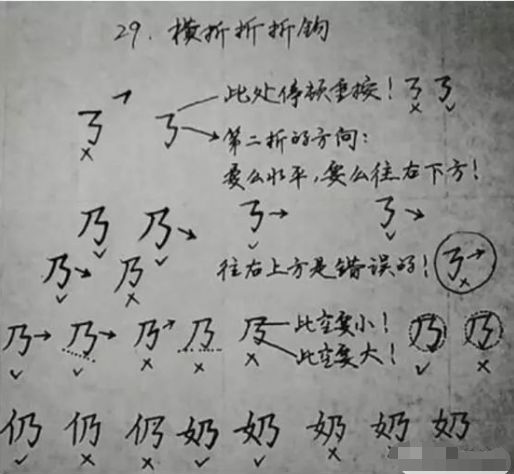 29. 横折折折钩
此处停顿重按！
第二折的方向：
要么水平，要么往右下方！
乃 乃
乃 乃
往右上方是错误的！
乃 乃 乃 乃 乃 此空要小！ 乃 乃
此空要大！
仍 仍 仍 奶 奶 奶 奶 奶